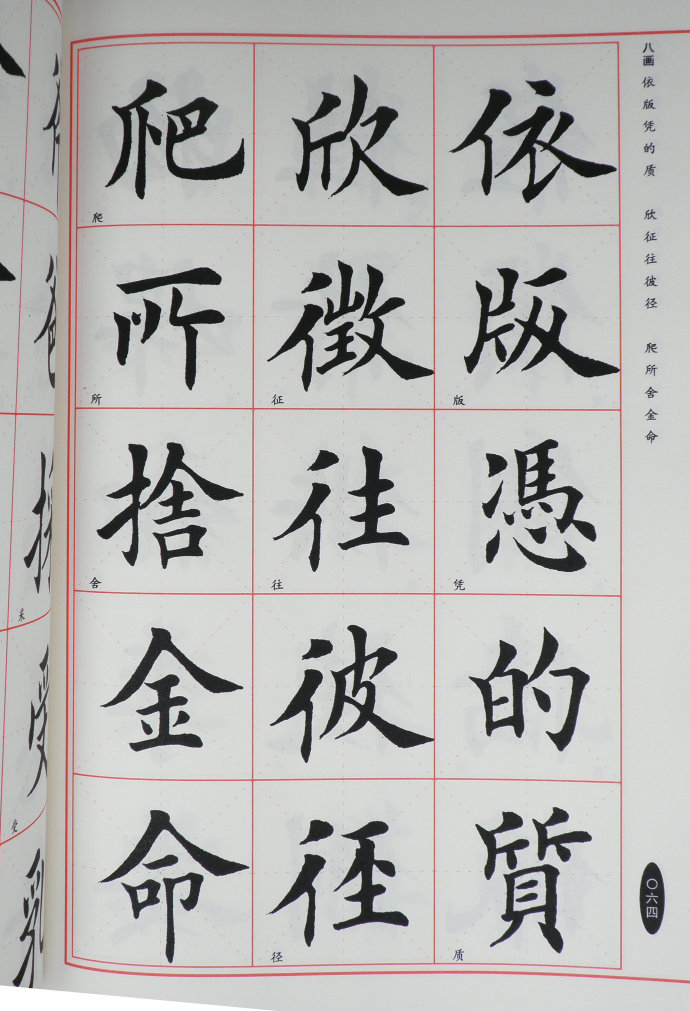 八画 依版凭的质 欣征往彼径 爬所舍金命
依
版
版
憑
凭
的
質
质
欣
徵
征
往
往
彼
徑
径
爬
爬
所
所
捨
舍
金
命
〇六四
采
受
受